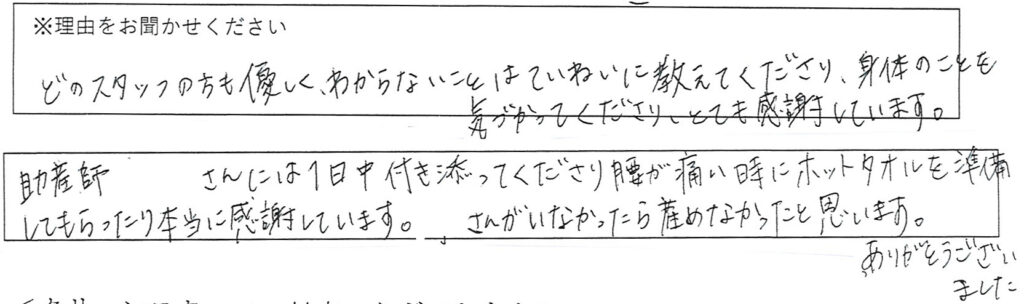 ※理由をお聞かせください
どのスタッフの方も優しく、わからないことはていねいに教えてくださり、身体のことを
気づかってくださり、とても感謝しています。
助産師 さんには1日中付き添ってくださり腰が痛い時にホットタオルを準備
してもらったり本当に感謝しています。 さんがいなかったら産めなかったと思います。
ありがとうござい
ました